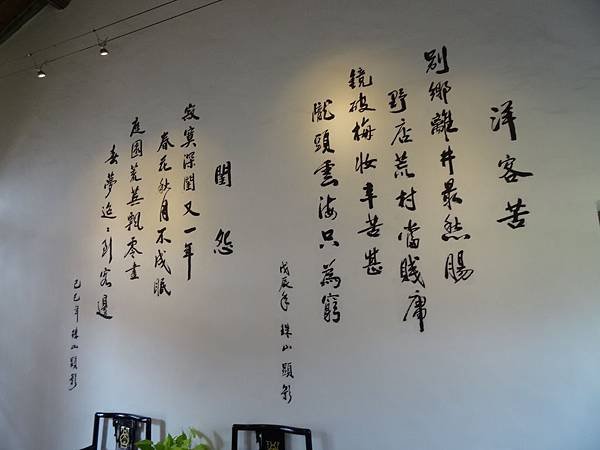 洋客苦
別鄉離井最愁腸
野店荒村當賤席
鏡破梅妝辛苦甚
隴頭雲海只為窮
戊辰年 珠山顯影
閨怨
寂寞深閨又一年
春花秋月不成眠
庭園荒蕪飄零盡
春夢迢迢到客邊
己巳年 珠山顯影